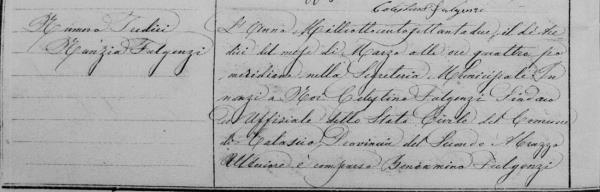 Celestino Fulgenzi
Numero Tredici
Nunzia Fulgenzi
L'Anno Milleottocentosettantadue, il dì tre
dici del mese di Marzo alle ore quattro po
meridiane nella Segreteria Municipale In
nanzi a Noi Celestino Fulgenzi Sindaco
ed Uffiziale dello Stato Civile del Comune
di Calascio, Provincia del Secondo Abruzzo
Ulteriore è comparso Beniamino Fulgenzi